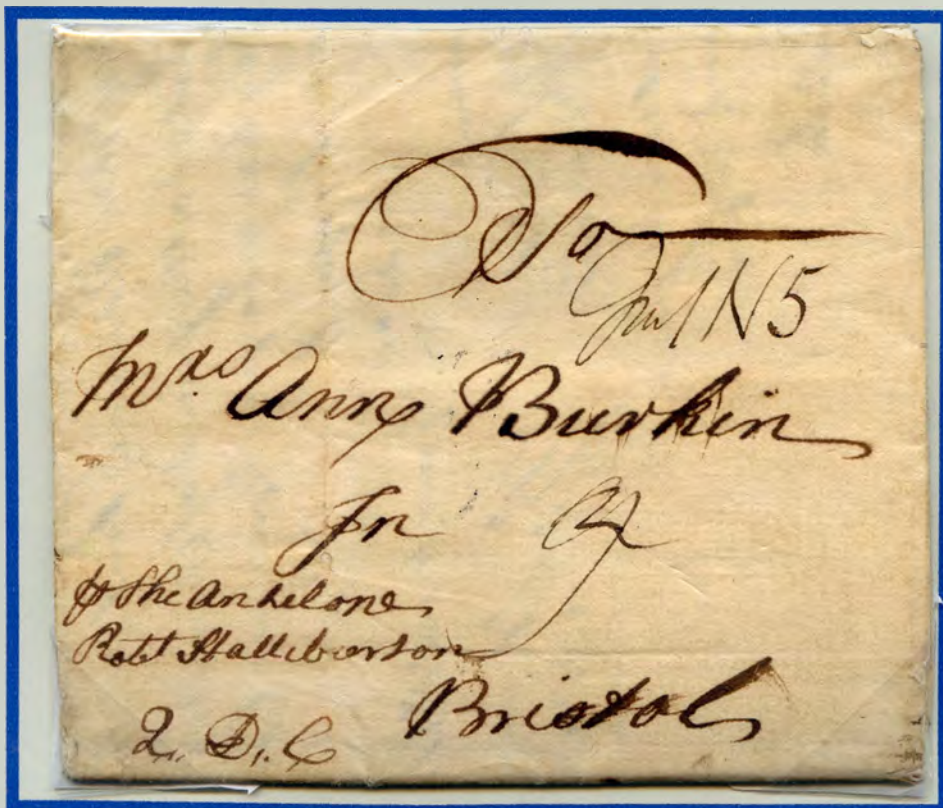 To
Mrs Ann Burkin
In
⅌ The Antelope
Robt Halliburton
Bristol
Q. D. C